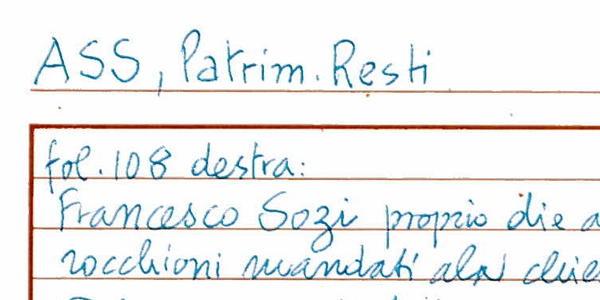 ASS, Patrim. Resti
fol. 108 destra:
Francesco Sozi proprio die a
rocchioni mandati ala chie